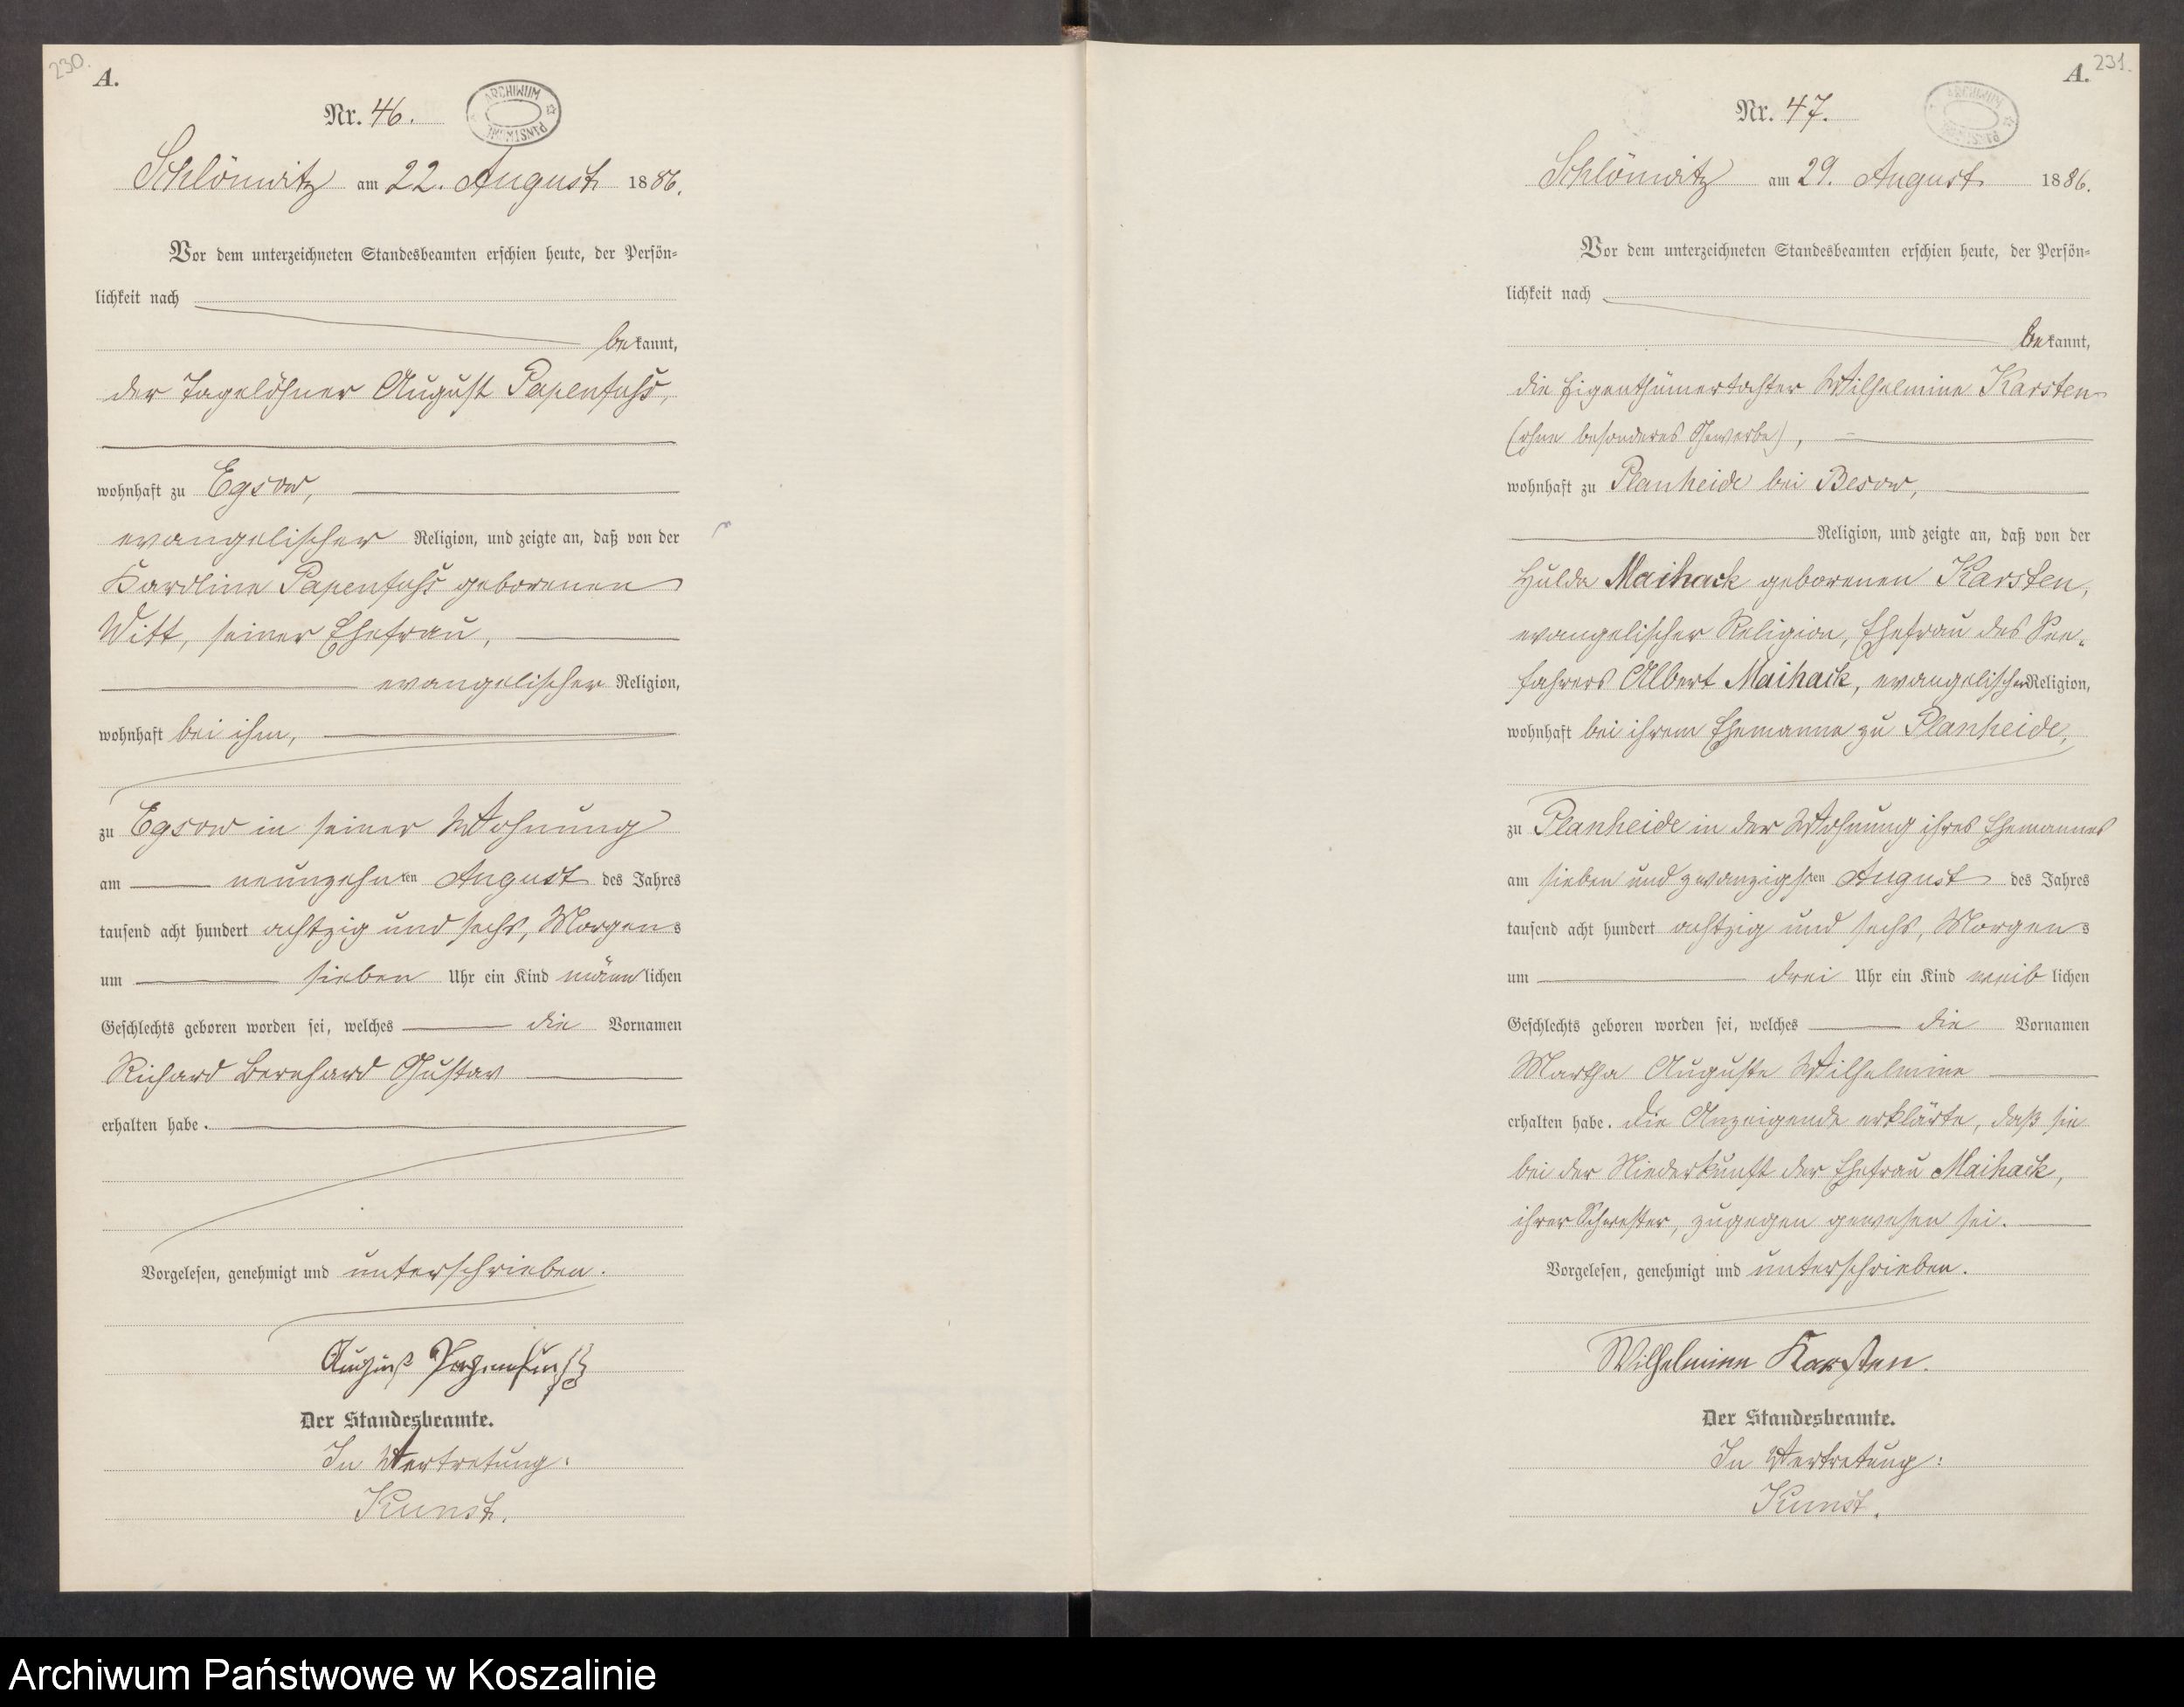 230.
A.
Nr. 46.
ARCHIWUM
Schlönwitz am 22. August 1886.
Vor dem unterzeichneten Standesbeamten erschien heute, der Persön=
lichkeit nach
bekannt,
der Tagelöhner August Papenfuhs,
wohnhaft zu Egsow,
evangelischer Religion, und zeigte an, daß von der
Karoline Papenfuhs geborenen
Witt, seiner Ehefrau,
evangelischer Religion,
wohnhaft bei ihm,
zu Egsow in seiner Wohnung
am neunzehnten August des Jahres
tausend acht hundert achtzig und sechs, Morgens
um sieben Uhr ein Kind männlichen
Geschlechts geboren worden sei, welches die Vornamen
Richard Bernhard Gustav
erhalten habe.
Vorgelesen, genehmigt und unterschrieben.
August Papenfuß
Der Standesbeamte.
In Vertretung:
Kunst.
231.
A.
Nr. 47.
ARCHIWUM
Schlönwitz am 29. August 1886.
Vor dem unterzeichneten Standesbeamten erschien heute, der Persön=
lichkeit nach
bekannt,
die Eigenthümertochter Wilhelmine Karsten
(ohne besonderes Gewerbe),
wohnhaft zu Planheide bei Besow,
Religion, und zeigte an, daß von der
Hulda Maihack geborenen Karsten,
evangelischer Religion, Ehefrau des See-
fahrers Albert Maihack, evangelischer Religion,
wohnhaft bei ihrem Ehemanne zu Planheide,
zu Planheide in der Wohnung ihres Ehemannes
am sieben und zwanzigsten August des Jahres
tausend acht hundert achtzig und sechs, Morgens
um drei Uhr ein Kind weiblichen
Geschlechts geboren worden sei, welches die Vornamen
Martha Auguste Wilhelmine
erhalten habe. Die Anzeigende erklärte, daß sie
bei der Niederkunft der Ehefrau Maihack,
ihrer Schwester, zugegen gewesen sei.
Vorgelesen, genehmigt und unterschrieben.
Wilhelmine Karsten.
Der Standesbeamte.
In Vertretung:
Kunst.
Archiwum Państwowe w Koszalinie